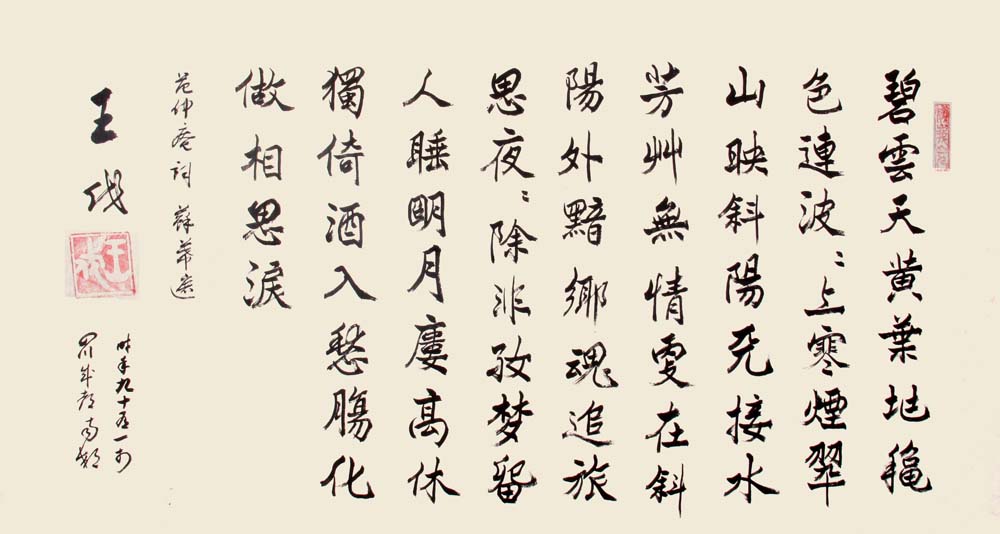 碧雲天黄葉地穐
色連波〻上寒煙翠
山映斜陽天接水
芳艸無情更在斜
陽外黯鄉魂追旅
思夜〻除非好梦留
人睡明月廔高休
獨倚酒入愁腸化
做相思淚
范仲庵詞 蘇幕遮
王伐
時年九十有一於
四川成都南郊